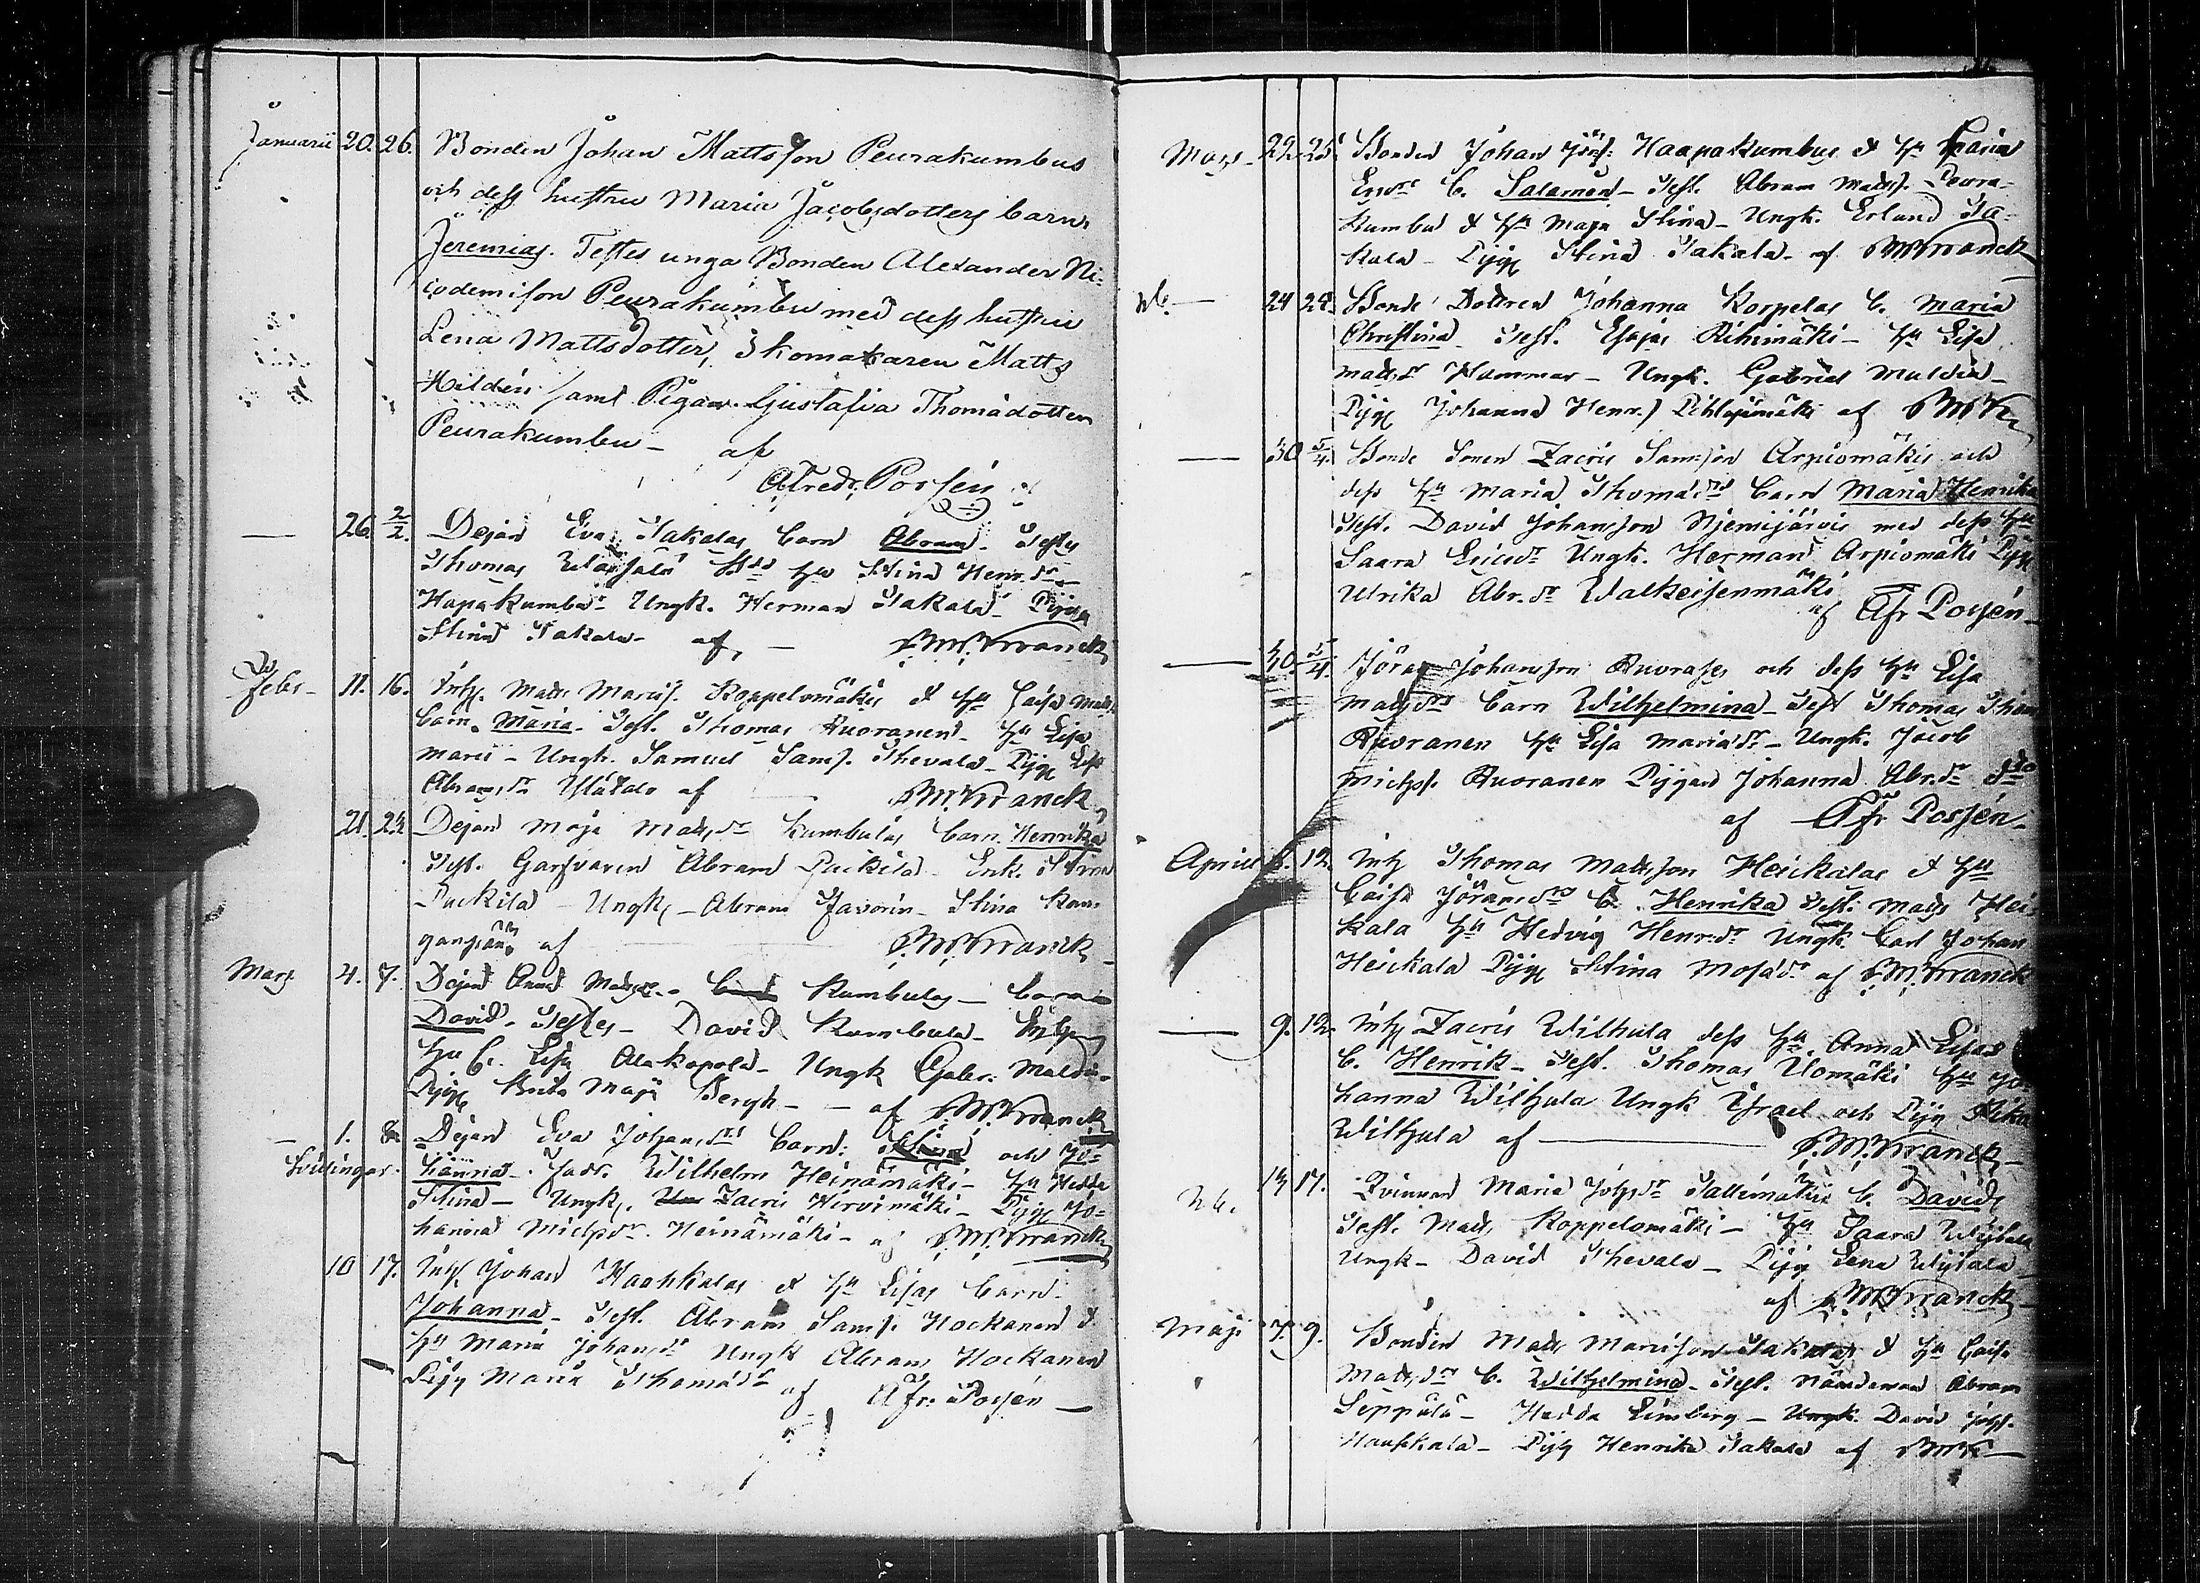 Januarii 20. 26. Bonden Johan Mattsson Peurakumbus
och dess hustru Maria Jacobsdotters barn
Jeremias. Testes unga Bonden Alexander Ni-
codemison Peurakumbu med dess hustru
Lena Mattsdotter, Skomakaren Matts
Hildén samt Pigan Gustafva Thomädotter
Peurakumbu – af
Alfred Possén
— 26. 2/2. Dejan Eva Takalas barn Abram. Testes
Thomas hu Stina Henr.dr
Hapakumbu Ungk. Herman Takala Pig.
Stina Takala – af – Franck
Febr – 11. 16. Inh. Matts Koppelomäkis & hu Caisa Matts
barn Maria – Test. Thomas Ruoranen – hu Lisa
Ungk. Samuel Sams. Thevala – Pig. Lisa
Abramsdr af Franck
21. 24 Dejan Maja Matsdr Kumbulas barn Henrika
Test. Garfvaren Abram Puckila – Enk. Stina
Puckila – Ungk. – Abram Favorin – Stina
af Franck
Mars 4. 7. Dejan Anna Kumbulas – barn
David – Testes – David Kumbula
hu C. Lisa Alakopola – Ungk Gabr.
Pig. Brita Maja Bergh – – af Franck
— 1. 8. Dejan Eva Johansdrs barn: Stina och Jo-
Tvillingar. hanna – Fadr. Wilhelm Heinämäki – hu Hedda
Stina – Ungk. Zacris Hirvimäki – Pig. Jo-
hanna Michsdr. Heinämäki – af Franck
10 17. Inh. Johan Hauhkalas & hu Lisas barn
Johanna – Test. Abram Sams. Hockanen &
hu Maria Johansdr Ungk Abram Hockanen
Pig Maria Thomädr
af A Fr. Possén –
Mars – 22. 25. Bonden Johan Haapakumbus & hu Caisa
Ericsdrs b. Salamon – Test. Abram Matss. Peura-
kumbu & hu Maja Stina – Ungk. Erland Ta-
kala – Pig. Stina Takala – af Franck
24 24. Bonde Dottren Johanna Korpelas b. Maria
Christina – Test. Esajas Rihimäki – hu Lisa
Matsdr Hammar – Ungk. Gabriel
Pig. Johanna Henr.s Pihlajamäki af
— 30 5/4. Bonde Sonen Zacris Samsson Arpiomäkis och
dess hu Maria Thomädrs barn Maria Henrika
Test. David Johansson Njemijärvis med dess hu
Saara Ericsdr Ungk. Herman Arpiomäki Pig
Ulrika Abr.dr Walkeisenmäki
af A Fr Possén
— 30. 5/4. Jöran Johansson Ruorases och dess hu Lisa
Matsdrs barn Wilhelmina – Test Thomas Thom
Ruoranen hu Lisa Mariädr – Ungk. Jacob
Michss. Ruoranen Pigan Johanna Abr.dr
af A Fr Possén –
April 12. Inh Thomas Matsson Heickalas & hu
Caisa Jöransdrs b. Henrika Test. Mats Hei-
kala hu Hedvig Henr.dr Ungk Carl Johan
Heickala Pig. Stina Mosädr af Franck
— 9. 12. Inh Zacris Wilhula dess hu Anna Lisas
b. Henrik – Test. Thomas Uomäki hu Jo-
hanna Wilhula Ungk Israel och Pig
Wilhula af — Franck –
14 17. Qvinnan Maria Johsdr b. David
Test. Mats Koppelomäki – hu Saara
Ungk – David Thevala – Pig Lena
af Franck –
Maji 7. 9. Bonden Mats Takalas & hu Caisa
Matsdrs b. Wilhelmina – Test. Nämdeman Abram
Seppälä – Hedda Limberg – Ungk. David Johs.
Hauhkala – Pig Henrika Takala af